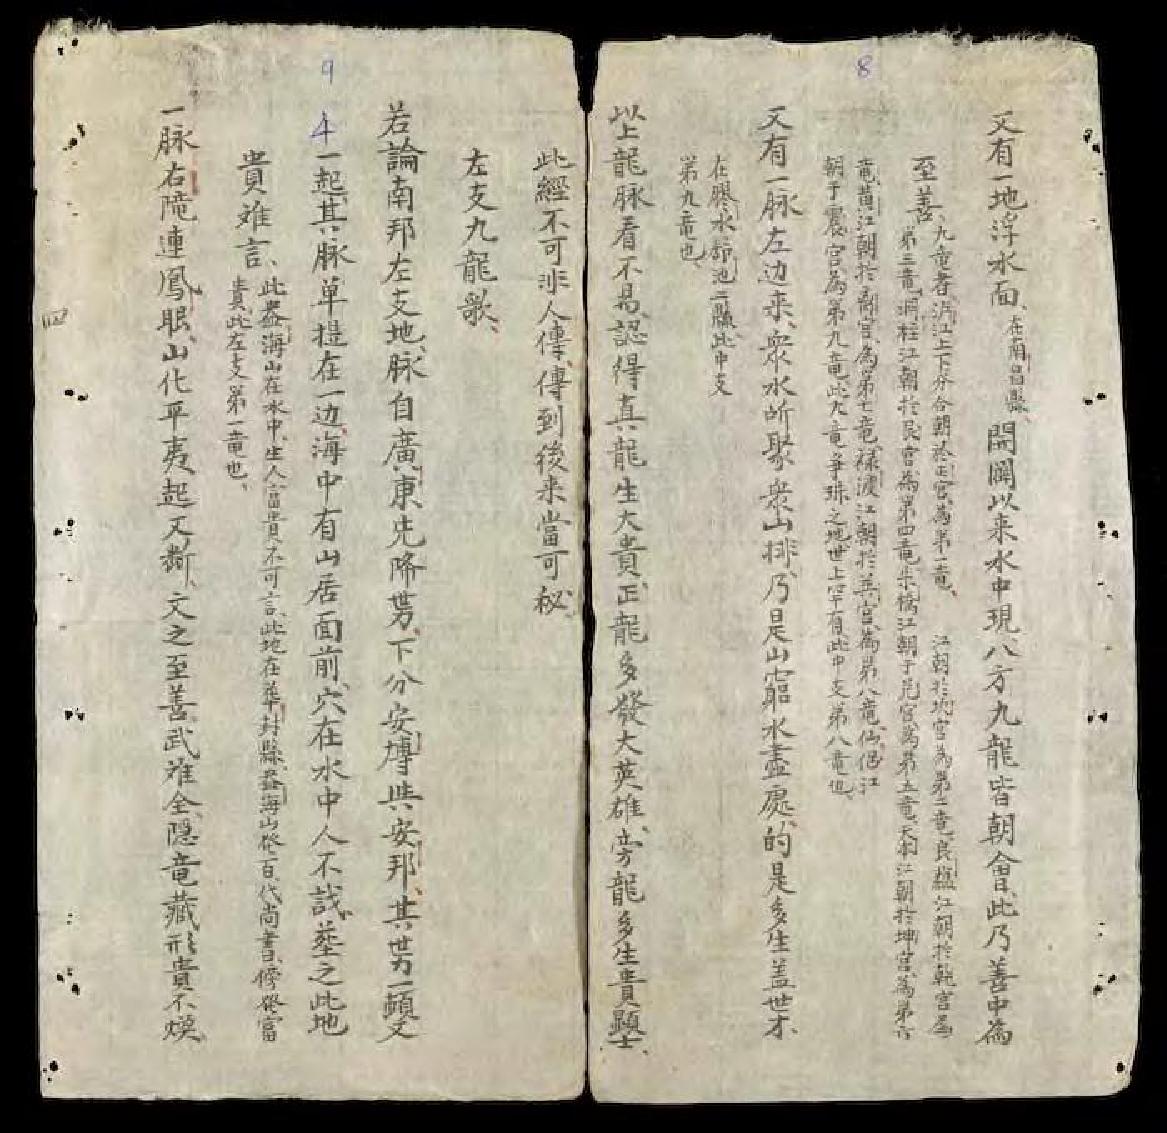 8
又有一地浮水面、在南昌縣、開闢以来水中現八方九龍皆朝會、此乃善中為
至善、九竜者、洞江上下分合朝於正宮、為第一竜、江朝於坎宮為第二竜、良
江朝於乾宮為
第三竜、洞柱江朝於艮宮、為第四竜、朱橋江朝于兌宮為第五竜、天本江朝於坤宮、為第六
竜、黄江朝於离宮、為第七竜、禄渡江朝於巽宮、為第八竜、仙侶江
朝于震宮、為第九竜、此九竜争珠之地世上罕有、此中支第八竜也、
又有一脉左边来、衆水所聚衆山排、乃是山窮水盡處、的是多生盖世才
在膠水縣池二縣此中支
第九竜也、
以上龍脉看不易、認得真龍生大貴、正龍多發大英雄、旁龍多生貴顯士、
9
此經不可非人傳、傳到後来當可秘
左支九龍歌、
若論南邦左支地、脉自廣東先降势、下分安博共安邦、其势一顿又
一起、其脉单提在一边、海中有山居面前、穴在水中人不識、葬之此地
貴难言、此盎海山在水中、生人富貴不可言、此地在華封縣、盎海山發百代尚書、傍發富
貴、此左支第一竜也、
一脉右障連鳳眼、山化平夷起又断、文之至善、武难全、隐竜藏形貴不煥、
四